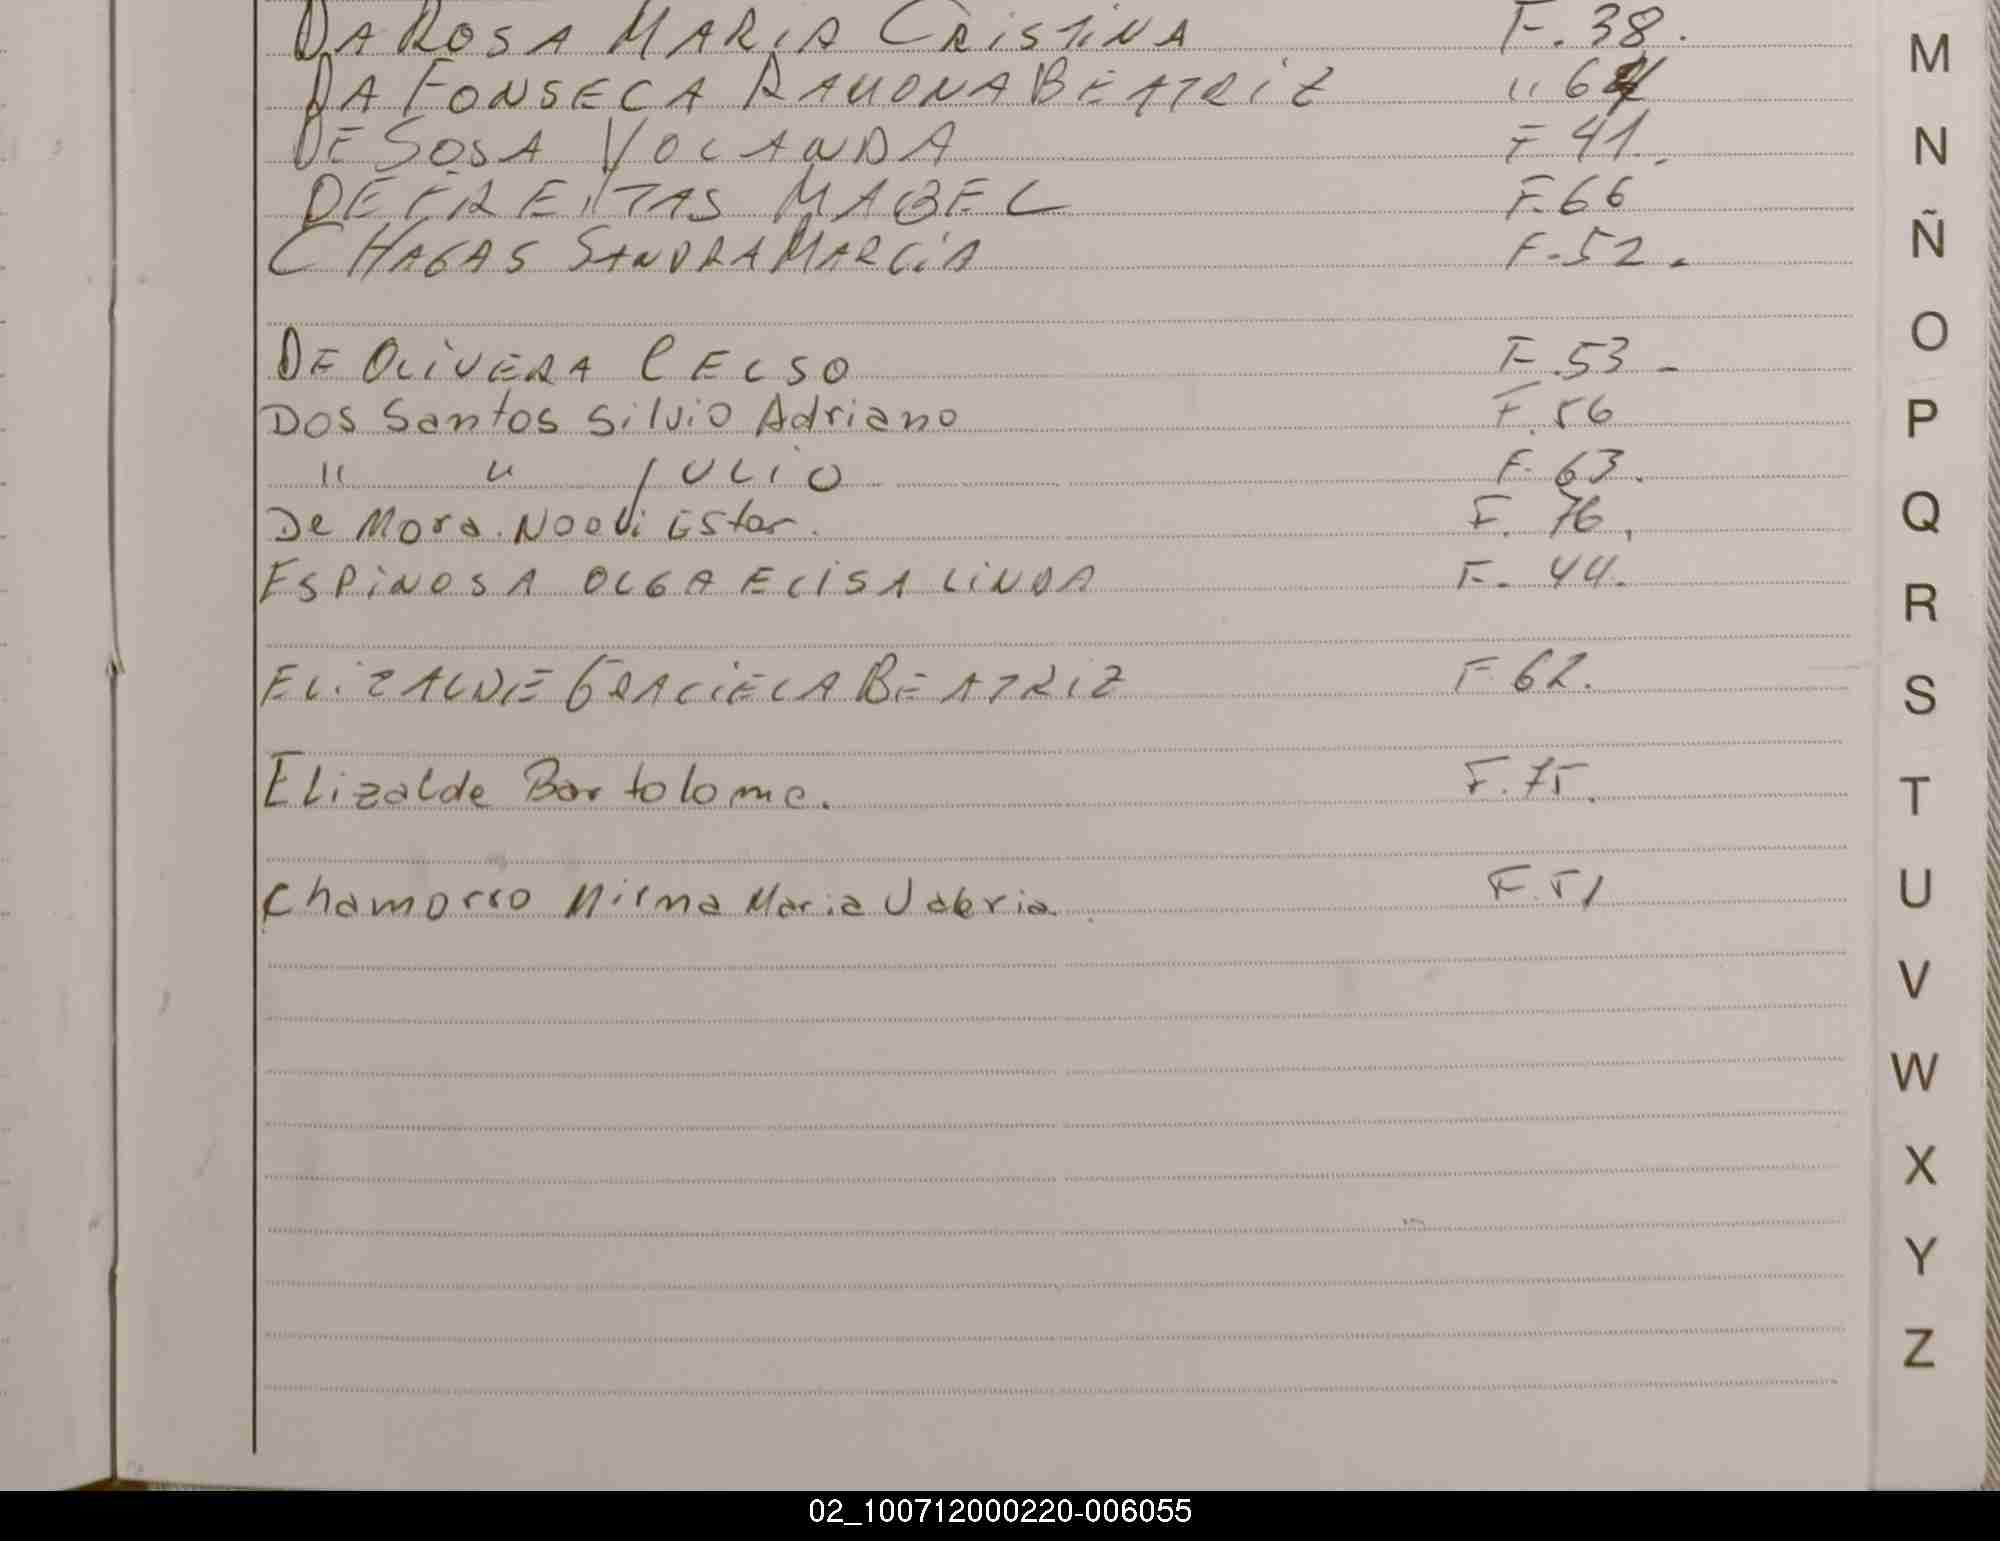 DA ROSA MARIA CRISTINA F. 38.
DA FONSECA RAMONA BEATRIZ " 64
DE SOSA YOLANDA F 41.
DE FREITAS MABEL F. 66
CHAGAS SANDRA MARCIA F. 52.
DE OLIVERA CELSO F. 53 -
Dos Santos Silvio Adriano F. 56
" " JULIO F. 63.
De Mora. Noeli Ester. F. 76.
ESPINOSA OLGA ELISA LINDA F. 44.
ELIZALDE GRACIELA BEATRIZ F 62.
Elizalde Bartolome. F. 75.
Chamorro Nirma Maria Valeria. F. 51
M
N
Ñ
O
P
Q
R
S
T
U
V
W
X
Y
Z
02_100712000220-006055